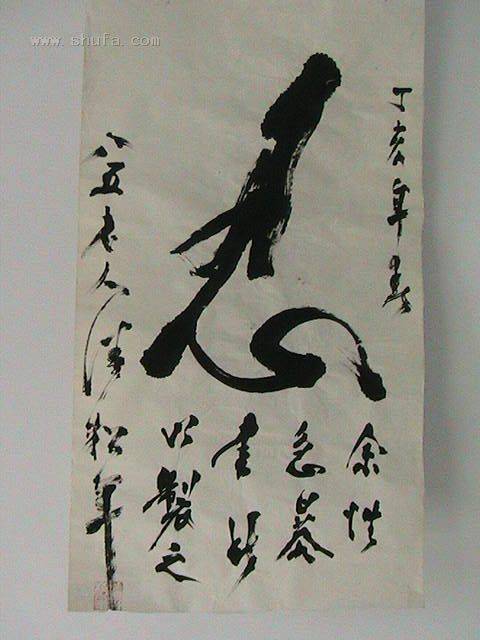 www.shufa.com
丁亥年
忍
余性
急
書此
以製之
八五老人 松年